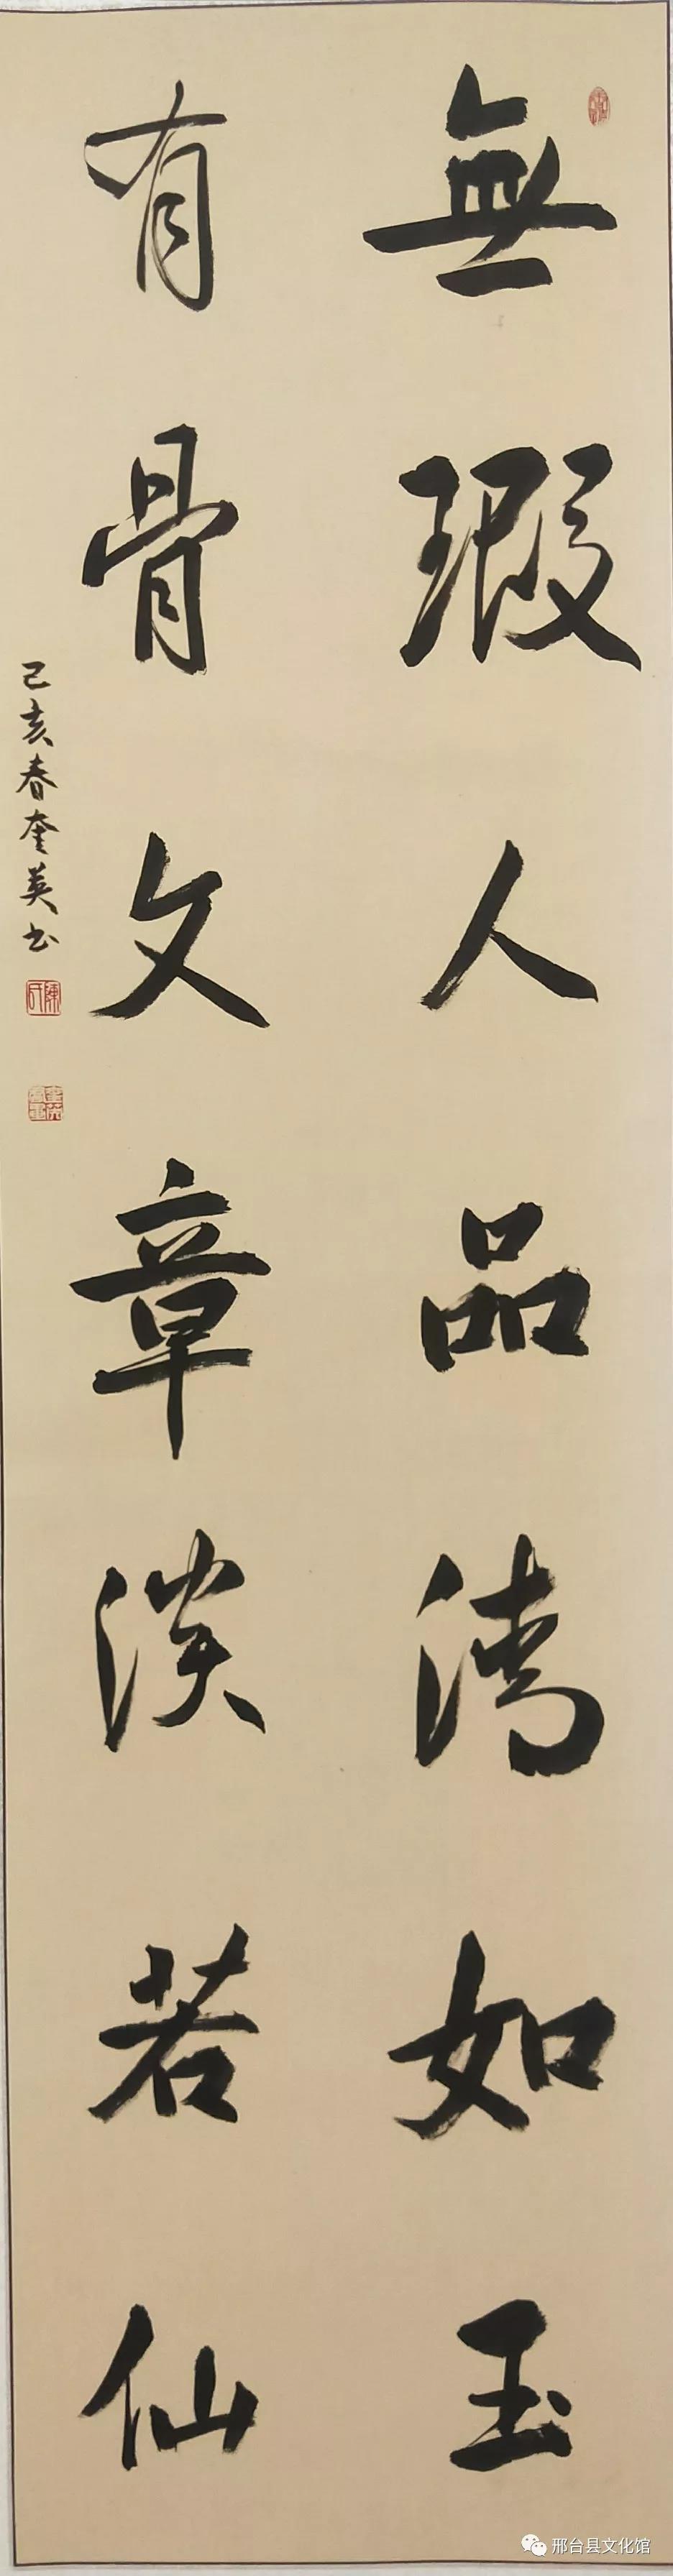 無瑕人品清如玉
有骨文章淡若仙
己亥春奎英书
陳氏
邢台县文化馆